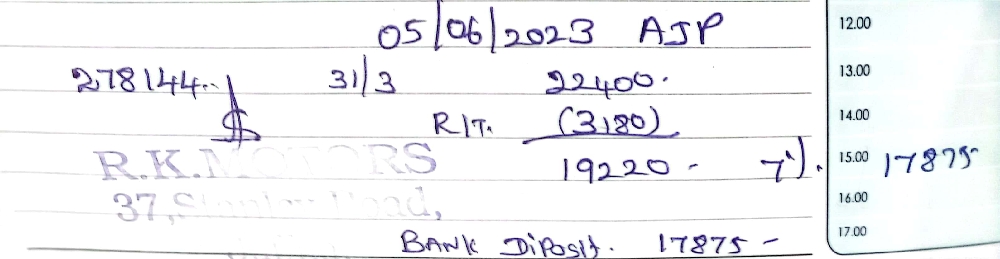 05/06/2023 AJP 12.00
278144.. 31/3 22400. 13.00
$ R/T. (3180) 14.00
R.K.MOTORS 19220 - 7%. 15.00 17875-
37, Road, 16.00
BANK Diposit. 17875 - 17.00